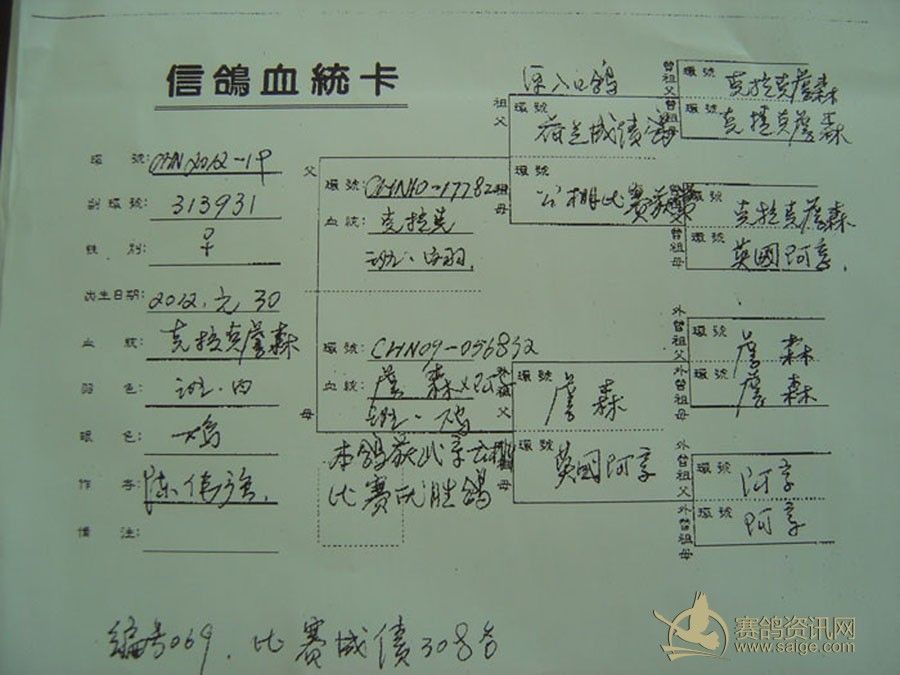 信鴿血統卡
環 號: CHN2012-19
副環號: 313931
性 別: 早
出生日期: 2012.元30
血 統: 克拉克詹森
羽 色: 斑·白
眼 色: 鸡
作 者: 陈伟强
備 注:
父
環號: CHN10-17782
血統: 克拉克
斑·白羽
母
環號: CHN09-056832
血統: 詹森
斑·鸡
本鴿获
比赛优胜鴿
祖父
環號
荷兰成绩鴿
祖母
公棚比赛获
外祖父
環號
詹森
環號
英國阿亨
曾祖父
環號
克拉克詹森
曾祖母
環號
克拉克詹森
環號
克拉克詹森
曾祖母
環號
英國阿亨
外曾祖父
環號
詹森
外曾祖母
環號
詹森
外曾祖父
環號
阿亨
外曾祖母
環號
阿亨
编号069. 比赛成债308名
赛鸽资讯网
www.saige.com